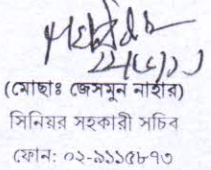 (মোছাঃ জেসমুন নাহার)
সিনিয়র সহকারী সচিব
ফোন: ০২-৯১১৫৮৭৩